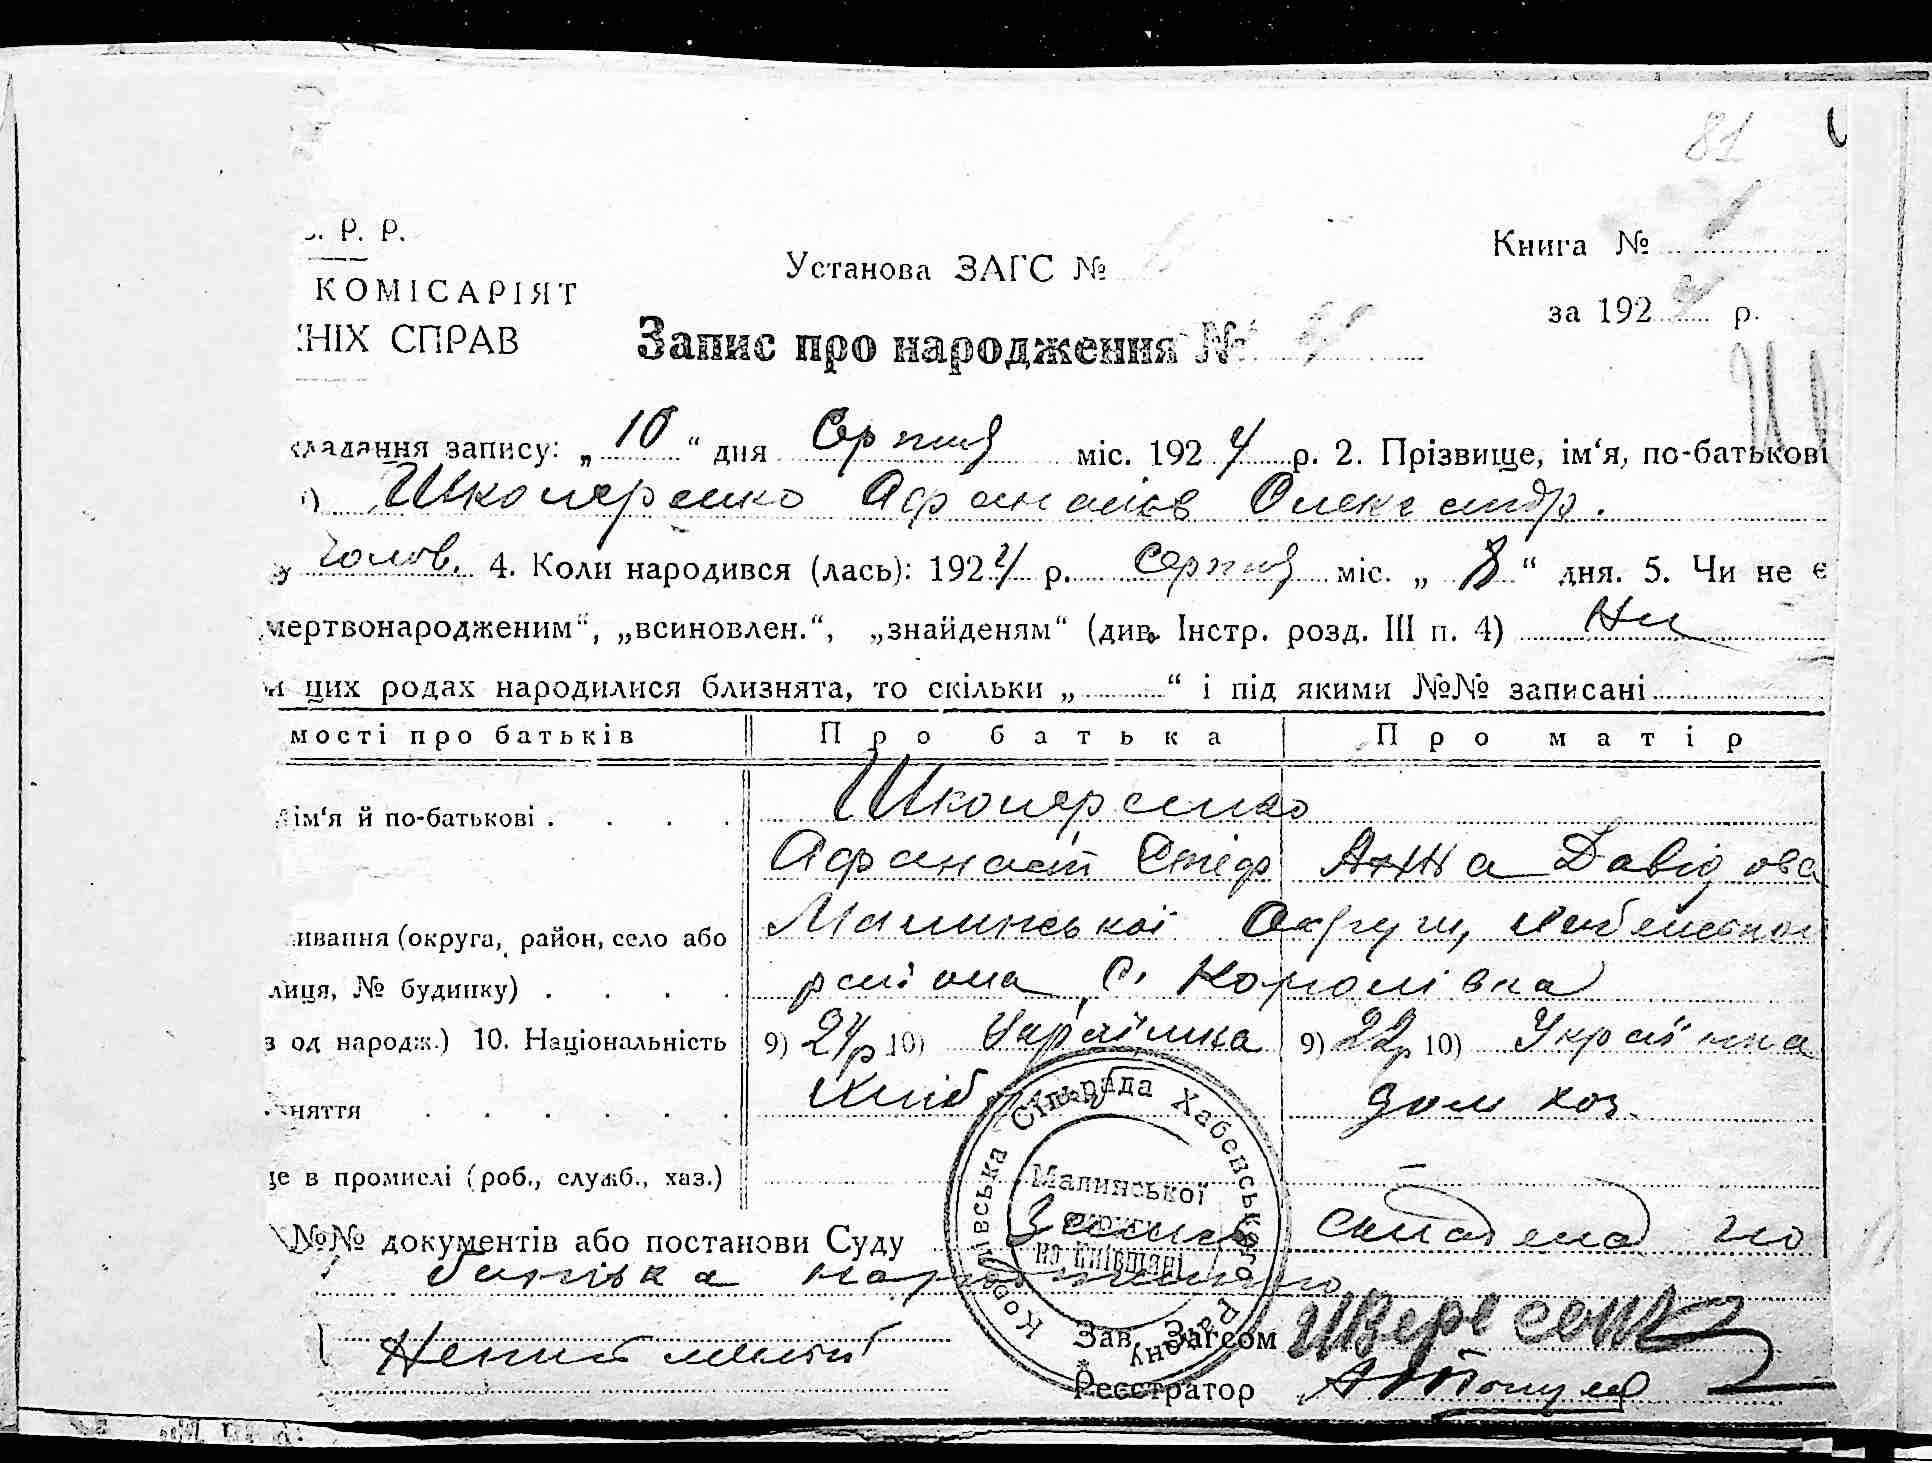 81
. Р. Р.
КОМІСАРІЯТ
НІХ СПРАВ
Установа ЗАГС №
Книга № 1
за 1924 р.
Запис про народження №
кладання запису: „ 10 “ дня Серпня міс. 1924 р. 2. Прізвище, ім‘я, по-батькові
) Шкоперенко Афанасіїв Олександр.
чолов. 4. Коли народився (лась): 1924 р. Серпня міс. „ 8 “ дня. 5. Чи не є
„мертвонародженим“, „всиновлен.“, „знайденям“ (див. Інстр. розд. III п. 4) Ни
и цих родах народилися близнята, то скільки „ “ і під якими №№ записані
мості про батьків Про батька Про матір
ім‘я й по-батькові . . . . Шкоперенко
Афанасій Анна Давідова
ивання (округа, район, село або Малинської Округи,
лиця, № будинку) . . . . району С. Королівка
з од народж.) 10. Національність 9) 24р 10) Українка 9) 22р 10) Українка
няття . . . . . . Хліб дом хоз.
це в промислі (роб., служб., хаз.)
№№ документів або постанови Суду Запись складена по
Королівська Сільрада Хабенського Району
Малинської
округи
на Київщині
Неписьменний
Зав. Загсом
Реєстратор